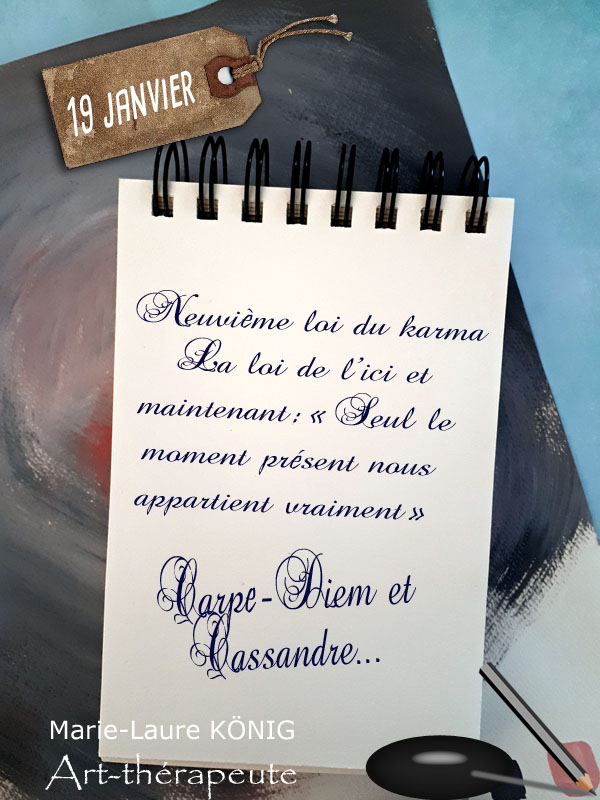 19 JANVIER
Neuvième loi du karma
La loi de l'ici et
maintenant : « Seul le
moment présent nous
appartient vraiment »
Carpe-Diem et
Cassandre...
Marie-Laure KÖNIG
Art-thérapeute